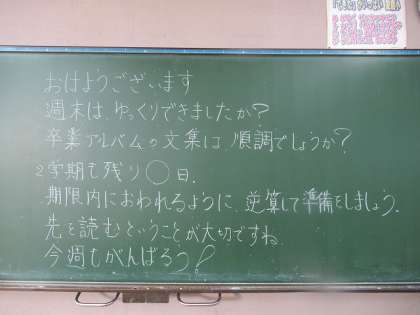 おはようございます
週末は、ゆっくりできましたか?
卒業アルバムの文集は、順調でしょうか?
2学期も残り◯日。
期限内におわれるように、逆算して準備をしましょう。
先を読むということが大切ですね。
今週もがんばろう!